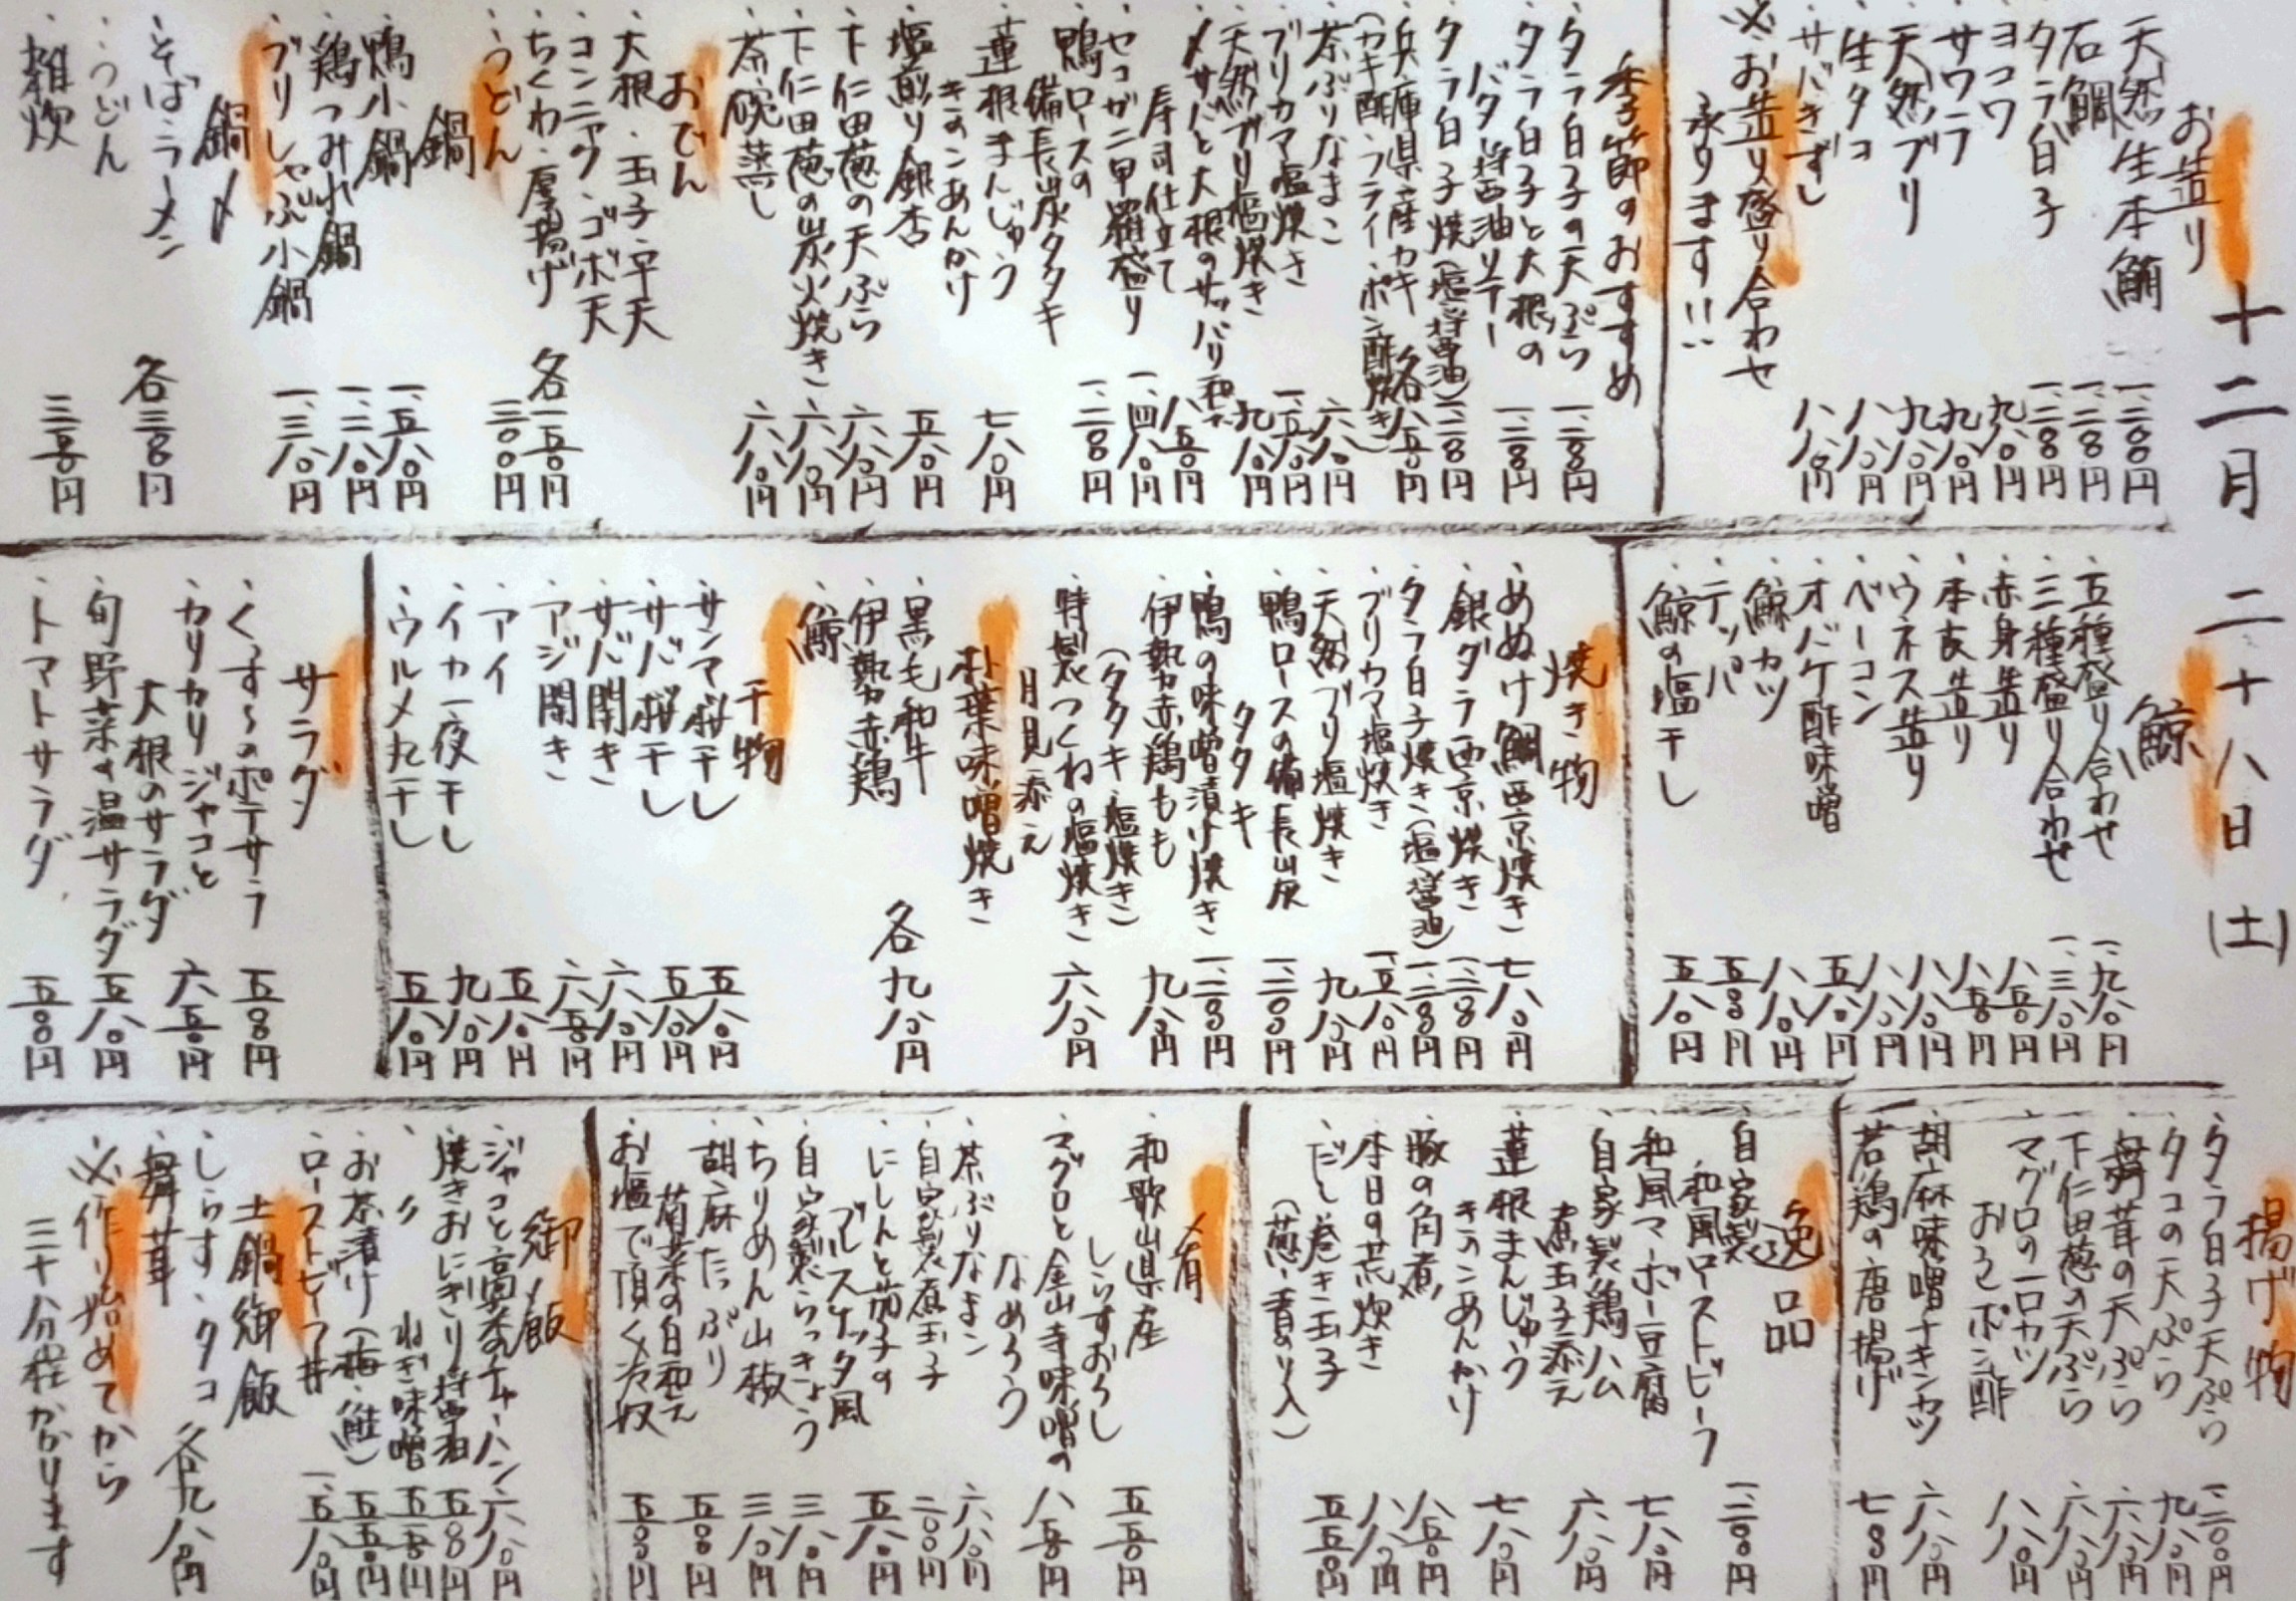 十二月二十八日(土)
お造り
・天然生本鮪 一、二〇〇円
・石鯛 一、二〇〇円
・タラ白子 一、二〇〇円
・ヨコワ 九八〇円
・サワラ 九八〇円
・天然ブリ 九八〇円
・生タコ 八八〇円
・サバきずし 八八〇円
※お造り盛り合わせ
承ります!!
季節のおすすめ
・タラ白子の天ぷら 一、二〇〇円
・タラ白子と大根の
バター醤油ソテー 一、二〇〇円
・タラ白子焼(塩・醤油) 一、二〇〇円
・兵庫県産カキ 各八五〇円
(カキ酢・フライ・ポン酢焼き)
・茶ぶりなまこ 六八〇円
・ブリカマ塩焼き 一、五八〇円
・天然ブリ塩焼き 九八〇円
・〆サバと大根のサッパリ和え
寿司仕立て 八五〇円
・セコガニ甲羅盛り 一、四八〇円
・鴨ロースの
備長炭タタキ 一、二〇〇円
・蓮根まんじゅう
きのこあんかけ 七八〇円
・塩煎り銀杏 五八〇円
・下仁田葱の天ぷら 六八〇円
・下仁田葱の炭火焼き 六八〇円
・茶碗蒸し 六八〇円
おでん
・大根・玉子・平天
・コンニャク・ゴボ天
・ちくわ・厚揚げ 各一五〇円
・うどん 三〇〇円
鍋
・鴨小鍋 一、五八〇円
・鶏つみれ鍋 一、二八〇円
・ブリしゃぶ小鍋 一、三八〇円
鍋〆
・そば・ラーメン
・うどん 各三〇〇円
・雑炊 三五〇円
鯨
・五種盛り合わせ 一、九八〇円
・三種盛り合わせ 一、三八〇円
・赤身造り 八五〇円
・本皮造り 八五〇円
・ウネス造り 八八〇円
・ベーコン 八八〇円
・オバケ酢味噌 五八〇円
・鯨カツ 八八〇円
・テッパ 五〇〇円
・鯨の塩干し 五八〇円
焼き物
・めぬけ鯛西京焼き 七八〇円
・銀ダラ西京焼き 一、二〇〇円
・タラ白子焼き(塩・醤油) 一、二〇〇円
・ブリカマ塩焼き 一、五八〇円
・天然ブリ塩焼き 九八〇円
・鴨ロースの備長炭
タタキ 一、二〇〇円
・鴨の味噌漬け焼き 一、二〇〇円
・伊勢赤鶏もも
(タタキ・塩焼き) 九八〇円
・特製つくねの塩焼き
月見添え 六八〇円
朴葉味噌焼き
・黒毛和牛
・伊勢赤鶏
・鯨 各九八〇円
干物
・サンマ桜干し 五八〇円
・サバ桜干し 五八〇円
・サバ開き 六八〇円
・アジ開き 六五〇円
・アイ 五八〇円
・イカ一夜干し 九八〇円
・ウルメ丸干し 五八〇円
サラダ
・くっす〜のポテサラ 五〇〇円
・カリカリジャコと
大根のサラダ 六五〇円
・旬野菜の温サラダ 五八〇円
・トマトサラダ 五〇〇円
揚げ物
・タラ白子天ぷら 一、二〇〇円
・タコの天ぷら 九八〇円
・舞茸の天ぷら 六八〇円
・下仁田葱の天ぷら 六八〇円
・マグロの一口カツ
おろしポン酢 八八〇円
・胡麻味噌チキンカツ 六八〇円
・若鶏の唐揚げ 七〇〇円
逸品
・自家製
和風ローストビーフ 一、二〇〇円
・和風マーボー豆腐 七八〇円
・自家製鶏ハム
煮玉子添え 六八〇円
・蓮根まんじゅう
きのこあんかけ 七八〇円
・豚の角煮 八五〇円
・本日の荒炊き 八八〇円
・だし巻き玉子
(葱・青のり入) 五五〇円
肴
・和歌山県産
しらすおろし 五五〇円
・マグロと金山寺味噌の
なめろう 八五〇円
・茶ぶりなまこ 六八〇円
・自家製煮玉子 二〇〇円
・にしんと茄子の
ブルスケッタ風 五八〇円
・自家製らっきょう 三八〇円
・ちりめん山椒 三八〇円
・胡麻たっぷり
菊菜の白和え 五〇〇円
・お塩で頂く冷奴 五〇〇円
御飯
・ジャコと高菜のチャーハン 六八〇円
・焼きおにぎり醤油 五〇〇円
・〃 ねぎ味噌 五五〇円
・お茶漬け(梅・鮭) 五五〇円
・ローストビーフ丼 一、五八〇円
土鍋御飯
・しらす・タコ
・舞茸 各九八〇円
※作り始めてから
三十分程かかります